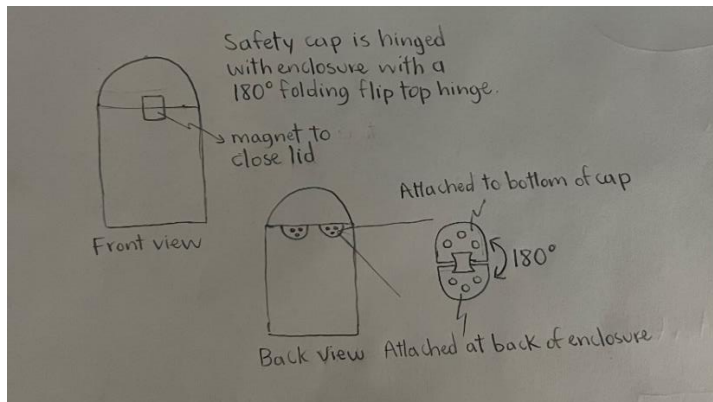 Safety cap is hinged
with enclosure with a
180° folding flip top hinge.
magnet to
close lid
Front view
Attached to bottom of cap
180°
Back view
Attached at back of enclosure